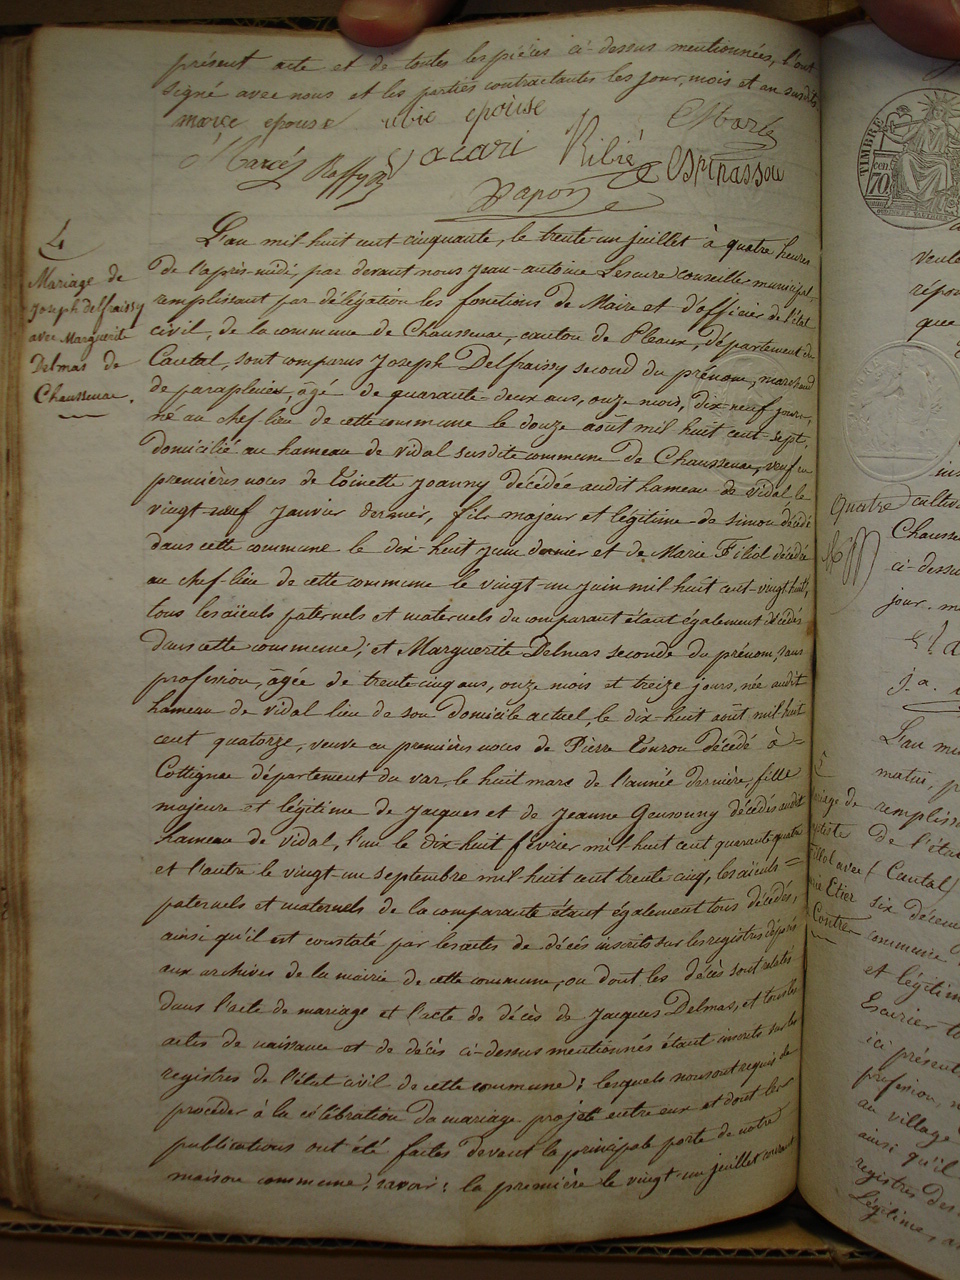 présent acte et de toutes les pièces ci-dessus mentionnées, l'ont
signé avec nous et les parties contractantes les jour, mois et an susdits
marcé epouse ribie epouse
Marcés Raffy Lacari Ribié Espinassou
Papon
4
Mariage de
Joseph Delfraissy
avec Marguerite
Delmas de
Chaussenac.
L'an mil huit cent cinquante, le trente-un juillet à quatre heures
de l'après-midi, par devant nous Jean-antoine Lescure conseiller municipal
remplissant par délégation les fonctions de Maire et d'officier de l'état
civil, de la commune de Chaussenac, canton de Pleaux, département du
Cantal, sont comparus Joseph Delfraissy second du prénom, marchand
de parapluies, âgé de quarante-deux ans, onze mois, dix-neuf jours,
né au chef-lieu de cette commune le douze août mil huit cent sept,
domicilié au hameau de vidal susdite commune de Chaussenac, veuf en
premières noces de Toinette Joanny décédée audit hameau de vidal le
vingt-neuf Janvier dernier, fils majeur et légitime de simon décédé
dans cette commune le dix huit juin dernier et de Marie Filiol décédée
au chef-lieu de cette commune le vingt-un juin mil huit cent-vingt huit,
tous les aïeuls paternels et maternels du comparant étant également décédés
dans cette commune; et Marguerite Delmas seconde du prénom, sans
profession, âgée de trente cinq ans, onze mois et treize jours, née audit
hameau de vidal lieu de son domicile actuel, le dix-huit août mil-huit
cent quatorze, veuve en premières noces de Pierre Tourou décédé à
Cottignac département du var, le huit mars de l'année dernière, fille
majeure et légitime de Jacques et de Jeanne Gensonny décédés audit
hameau de vidal, l'un le dix-huit février mil huit cent quarante quatre
et l'autre le vingt-un septembre mil-huit cent trente cinq, les aïeuls
paternels et maternels de la comparante étant également tous décédés,
ainsi qu'il est constaté par les actes de décès inscrits sur les registres déposés
aux archives de la mairie de cette commune, ou dont les décès sont relatés
dans l'acte de mariage et l'acte de décès de Jacques Delmas, et tous les
actes de naissance et de décès ci-dessus mentionnés étant inscrits sur les
registres de l'état civil de cette commune; lesquels nous ont requis de
procéder à la célébration du mariage projeté entre eux et dont les
publications ont été faites devant la principale porte de notre
maison commune, savoir: la première le vingt-un juillet courant
TIMBRE
70
cen
que
Quatre
cultiv
Chausse
ci-dessu
jour. m
L'an mi
mariage de
rempliss
De l'éta
avec
(Cantal)
Etier
six décem
Contre
commune
et légitim
Escurier
ici présent
profession,
au village
ainsi qu'il
registres des
légitime,